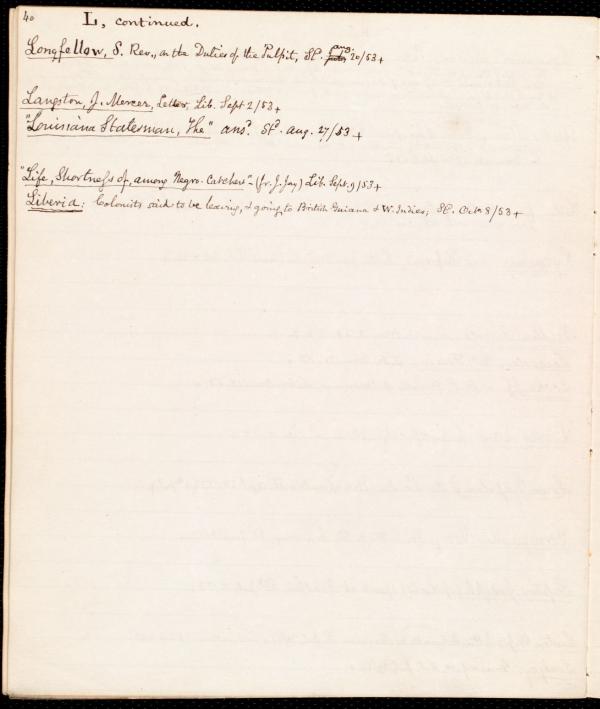 40
L, continued.
Longfellow, S. Rev., on the Duties of the Pulpit, St. Aug. 20/53+
Langston, J. Mercer, Letter, Lib. Sept 2/53+
"Louisiana Statesman, The" ansd. Std. Aug. 27/53+
"Life, Shortness of, among Negro-Catchers" - (fr. J. Jay) Lib. Sept. 9/53+
Liberia: Colonists said to be leaving, & going to British Guiana & W. Indies; St. Octr 8/53+